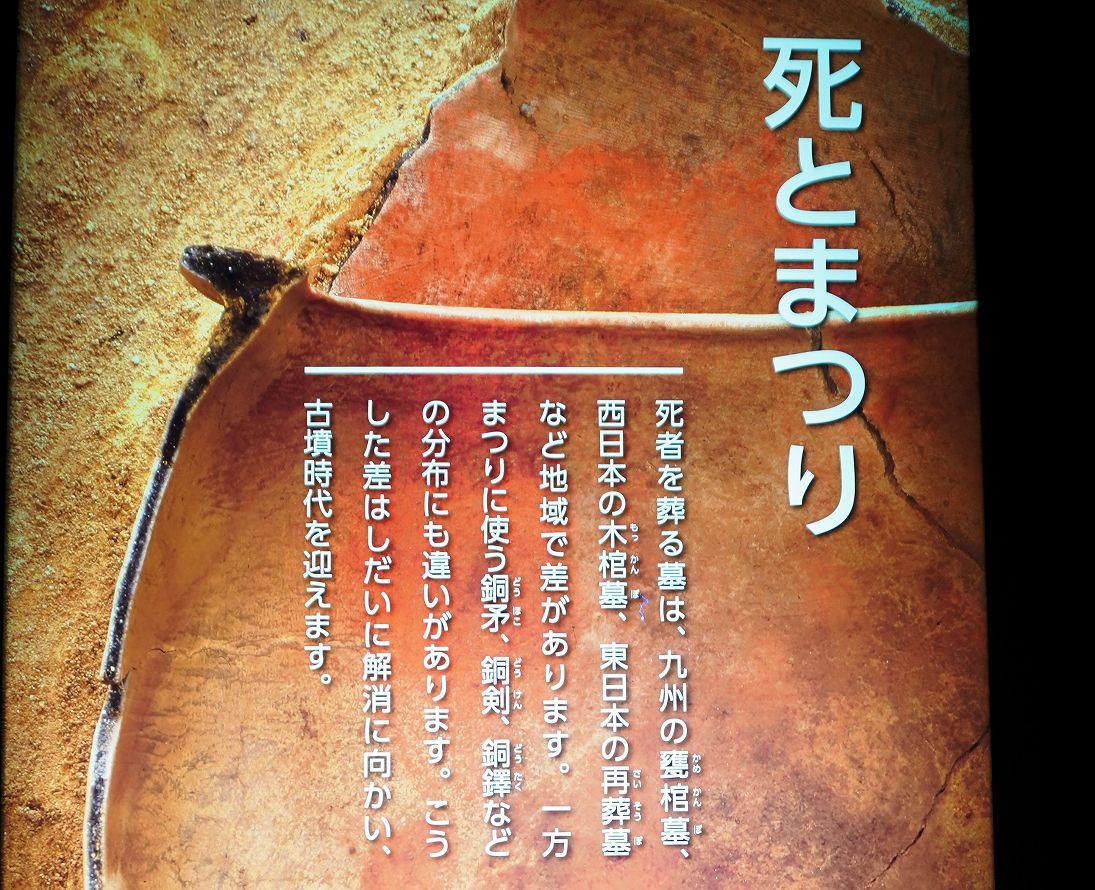 死とまつり
死者を葬る墓は、九州の甕棺墓、
西日本の木棺墓、東日本の再葬墓
など地域で差があります。一方
まつりに使う銅矛、銅剣、銅鐸など
の分布にも違いがあります。こう
した差はしだいに解消に向かい、
古墳時代を迎えます。